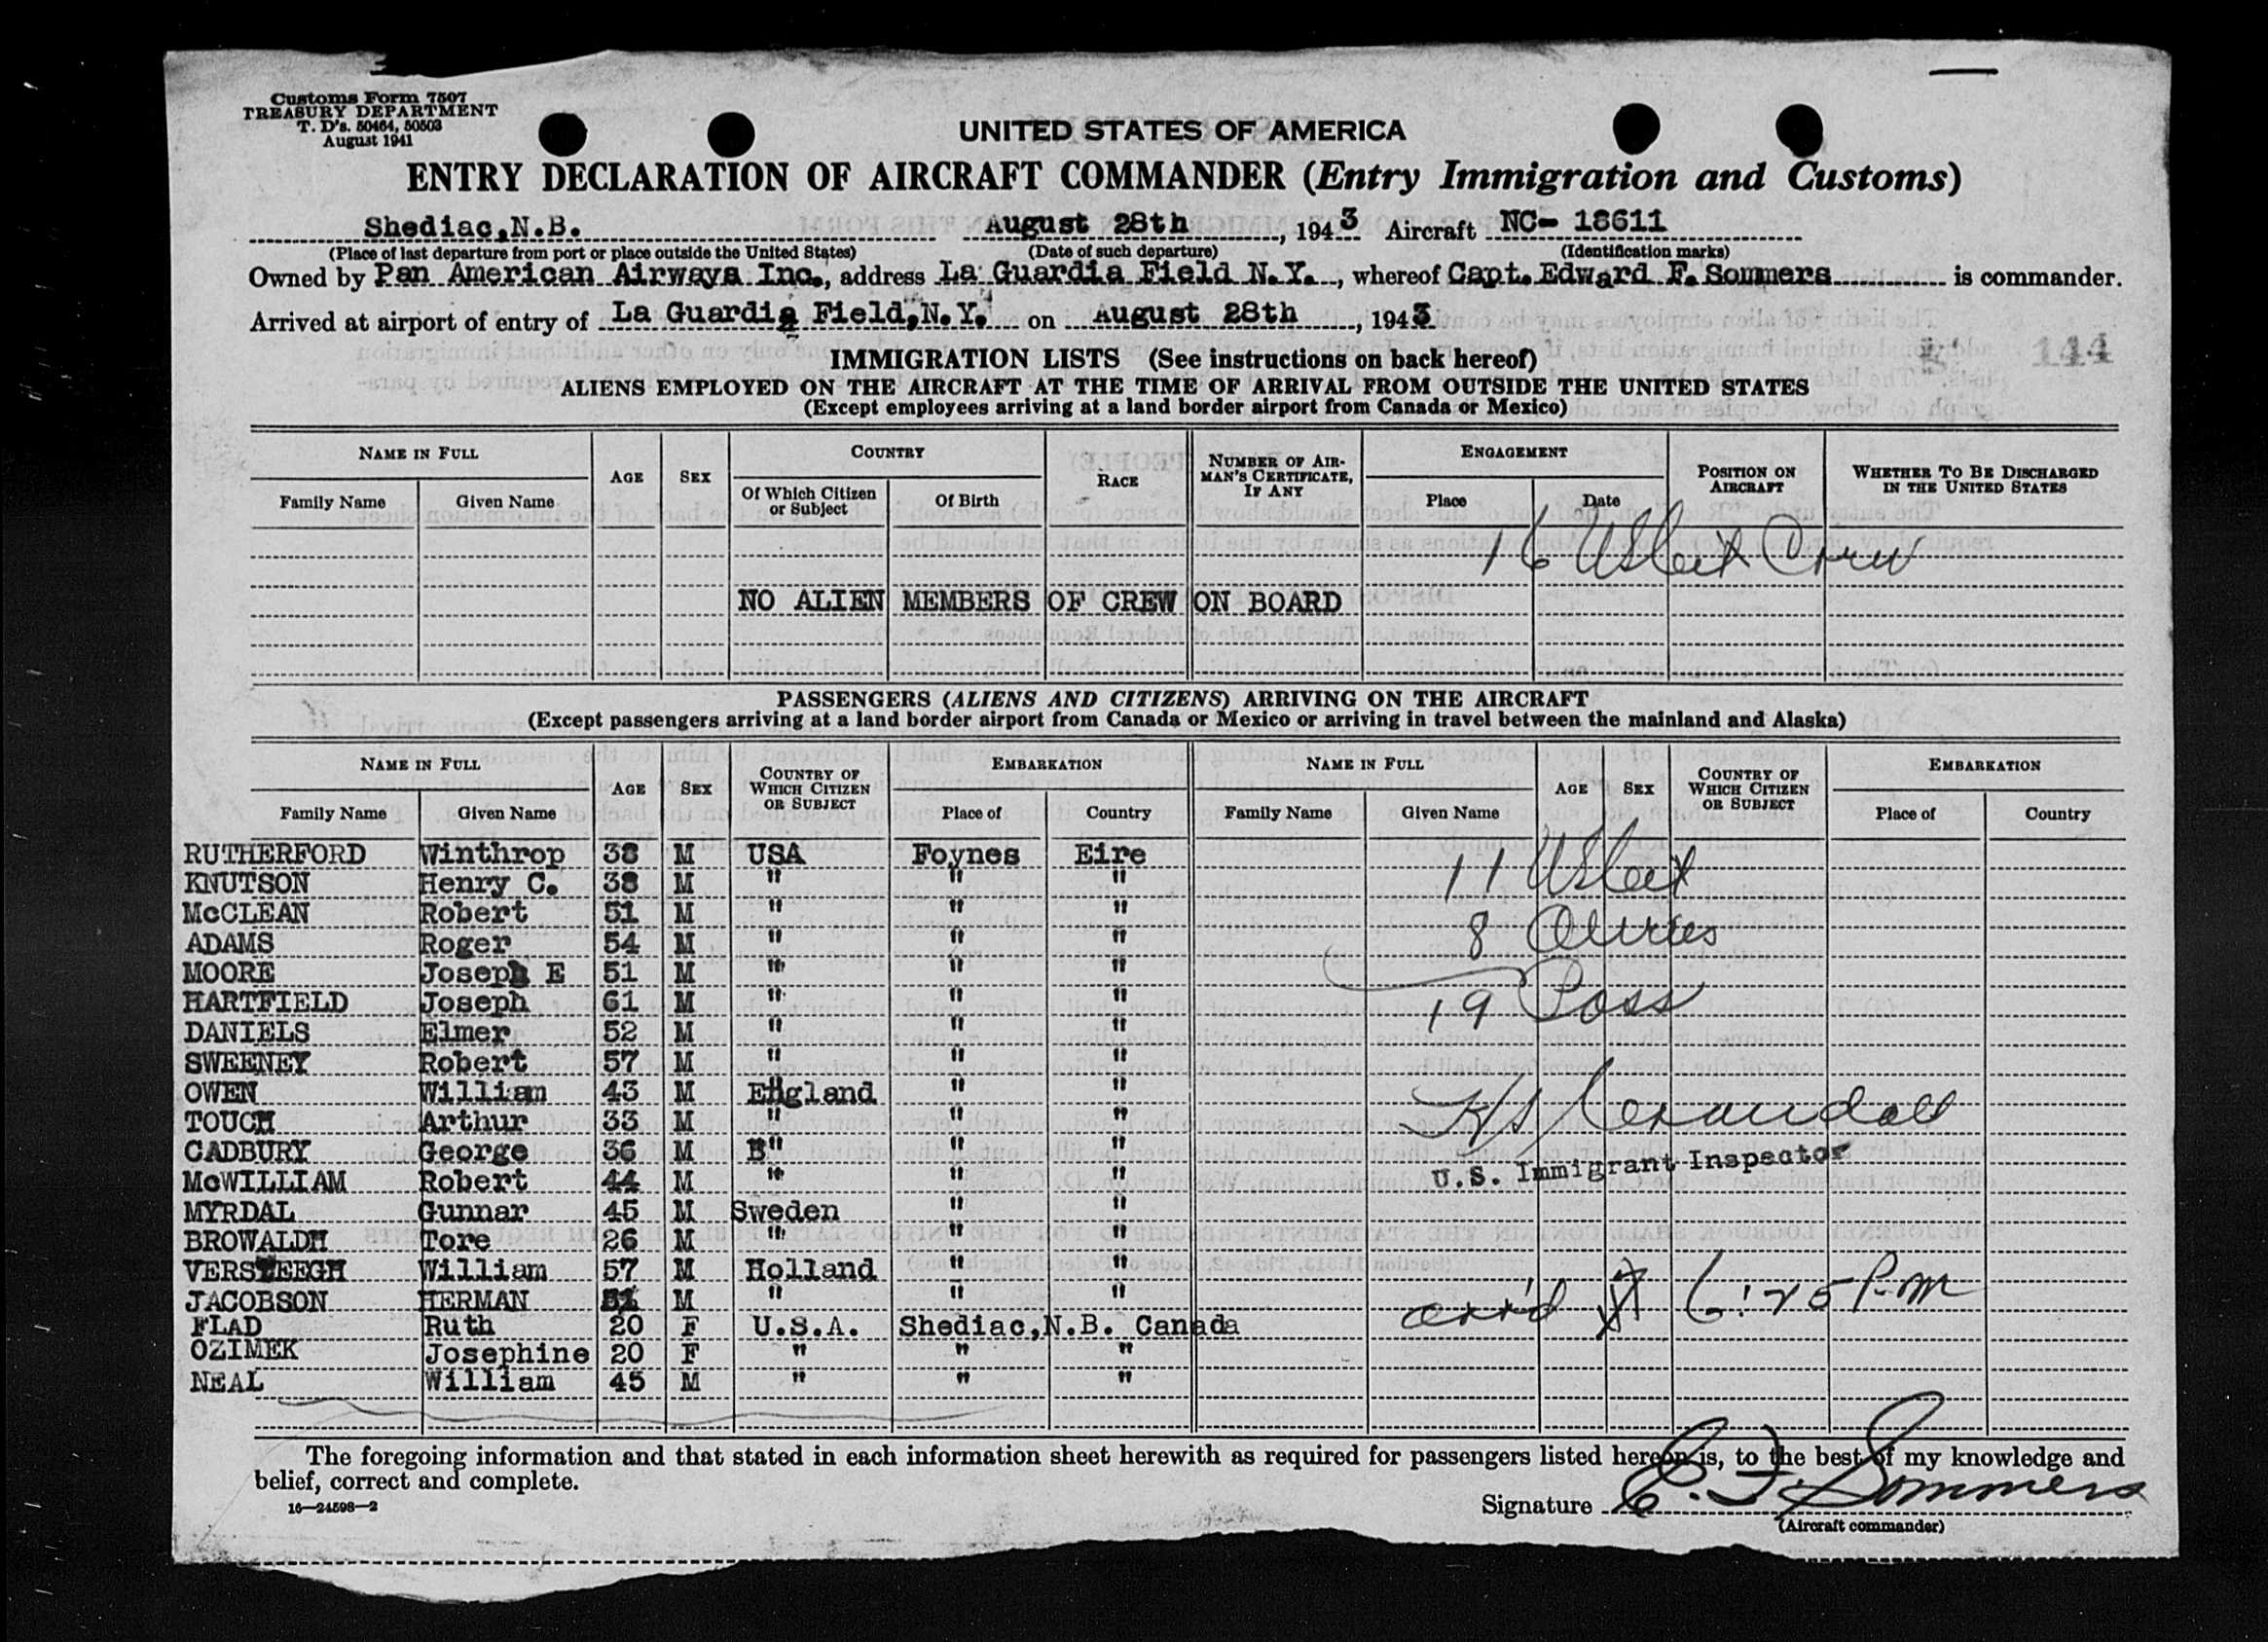 Customs Form 7507
TREASURY DEPARTMENT
T. D's. 50464, 50503
August 1941
UNITED STATES OF AMERICA
ENTRY DECLARATION OF AIRCRAFT COMMANDER (Entry Immigration and Customs)
Shediac,N.B. August 28th, 1943 Aircraft NC- 18611
(Place of last departure from port or place outside the United States) (Date of such departure) (Identification marks)
Owned by Pan American Airways Inc., address La Guardia Field N.Y., whereof Capt. Edward F. Sommers is commander.
Arrived at airport of entry of La Guardia Field, N.Y. on August 28th, 1943
IMMIGRATION LISTS (See instructions on back hereof)
144
ALIENS EMPLOYED ON THE AIRCRAFT AT THE TIME OF ARRIVAL FROM OUTSIDE THE UNITED STATES
(Except employees arriving at a land border airport from Canada or Mexico)
NAME IN FULL AGE SEX COUNTRY RACE NUMBER OF AIRMAN'S CERTIFICATE, IF ANY ENGAGEMENT POSITION ON AIRCRAFT WHETHER TO BE DISCHARGED IN THE UNITED STATES
Family Name Given Name Of Which Citizen or Subject Of Birth Place Date
16 US Cit Crew
NO ALIEN MEMBERS OF CREW ON BOARD
PASSENGERS (ALIENS AND CITIZENS) ARRIVING ON THE AIRCRAFT
(Except passengers arriving at a land border airport from Canada or Mexico or arriving in travel between the mainland and Alaska)
NAME IN FULL AGE SEX COUNTRY OF WHICH CITIZEN OR SUBJECT EMBARKATION NAME IN FULL AGE SEX COUNTRY OF WHICH CITIZEN OR SUBJECT EMBARKATION
Family Name Given Name Place of Country Family Name Given Name Place of Country
RUTHERFORD Winthrop 38 M USA Foynes Eire
KNUTSON Henry C. 38 M " " " 11 US Cit
McCLEAN Robert 51 M " " "
ADAMS Roger 54 M " " " 8 Aliens
MOORE Joseph E 51 M " " "
HARTFIELD Joseph 61 M " " " 19 Pass
DANIELS Elmer 52 M " " "
SWEENEY Robert 57 M " " "
OWEN William 43 M England " "
TOUCH Arthur 33 M " " " Crandall
CADBURY George 36 M " " "
McWILLIAM Robert 44 M " " " U.S. Immigrant Inspector
MYRDAL Gunnar 45 M Sweden " "
BROWALDH Tore 26 M " " "
VERSTEEGH William 57 M Holland " "
JACOBSON HERMAN M " " " arr'd 6:25 P.M
FLAD Ruth 20 F U.S.A. Shediac,N.B. Canada
OZIMEK Josephine 20 F " " "
NEAL William 45 M " " "
The foregoing information and that stated in each information sheet herewith as required for passengers listed hereon is, to the best of my knowledge and
belief, correct and complete.
16—24598—2
Signature E. F. Sommers
(Aircraft commander)